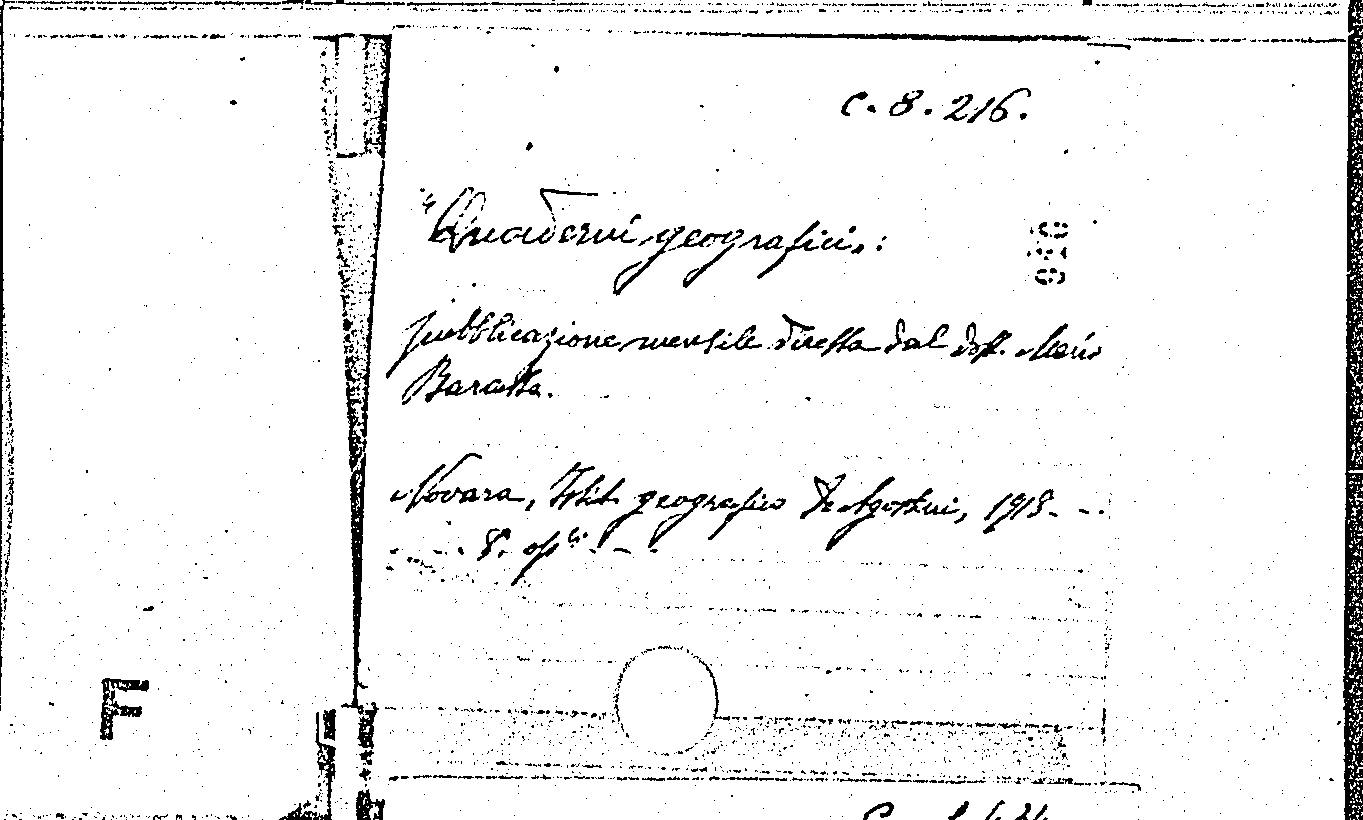 C. 8. 216.
"Quaderni geografici„:
pubblicazione mensile diretta dal dott. Mario
Baratta.
Novara, Istit. geografico De Agostini, 1918- - -
- - - 8. op^li - - -
F